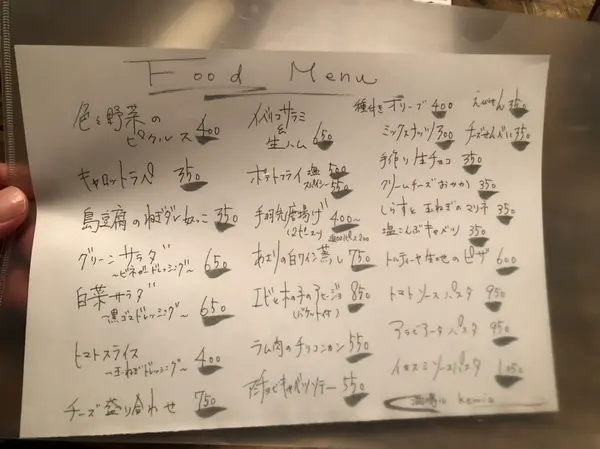 Food Menu
色々野菜の
ピクルス 400
キャロットラペ 350
島豆腐のねぎダレ奴っこ 350
グリーンサラダ 650
〜ビネガードレッシング〜
白菜サラダ 650
〜黒ゴマドレッシング〜
トマトスライス 400
〜玉ねぎドレッシング〜
チーズ盛り合わせ 750
イベリコサラミ
&
生ハム 650
ポテトフライ 塩 500
550
手羽先唐揚げ 400〜
あさりの白ワイン蒸し 750
エビときの子のアヒージョ 850
(バケット付)
ラム肉のチリコンカン 550
アンチョビキャベツソテー 550
種付きオリーブ 400
えびせん 350
ミックスナッツ 300
チーズせんべい 350
手作り生チョコ 350
クリームチーズおかか 350
しらすと玉ねぎのマリネ 350
塩こんぶキャベツ 350
トルティーヤ生地のピザ 600
トマトソースパスタ 950
アラビアータパスタ 950
イカスミソースパスタ 1,050
酒場 kemia